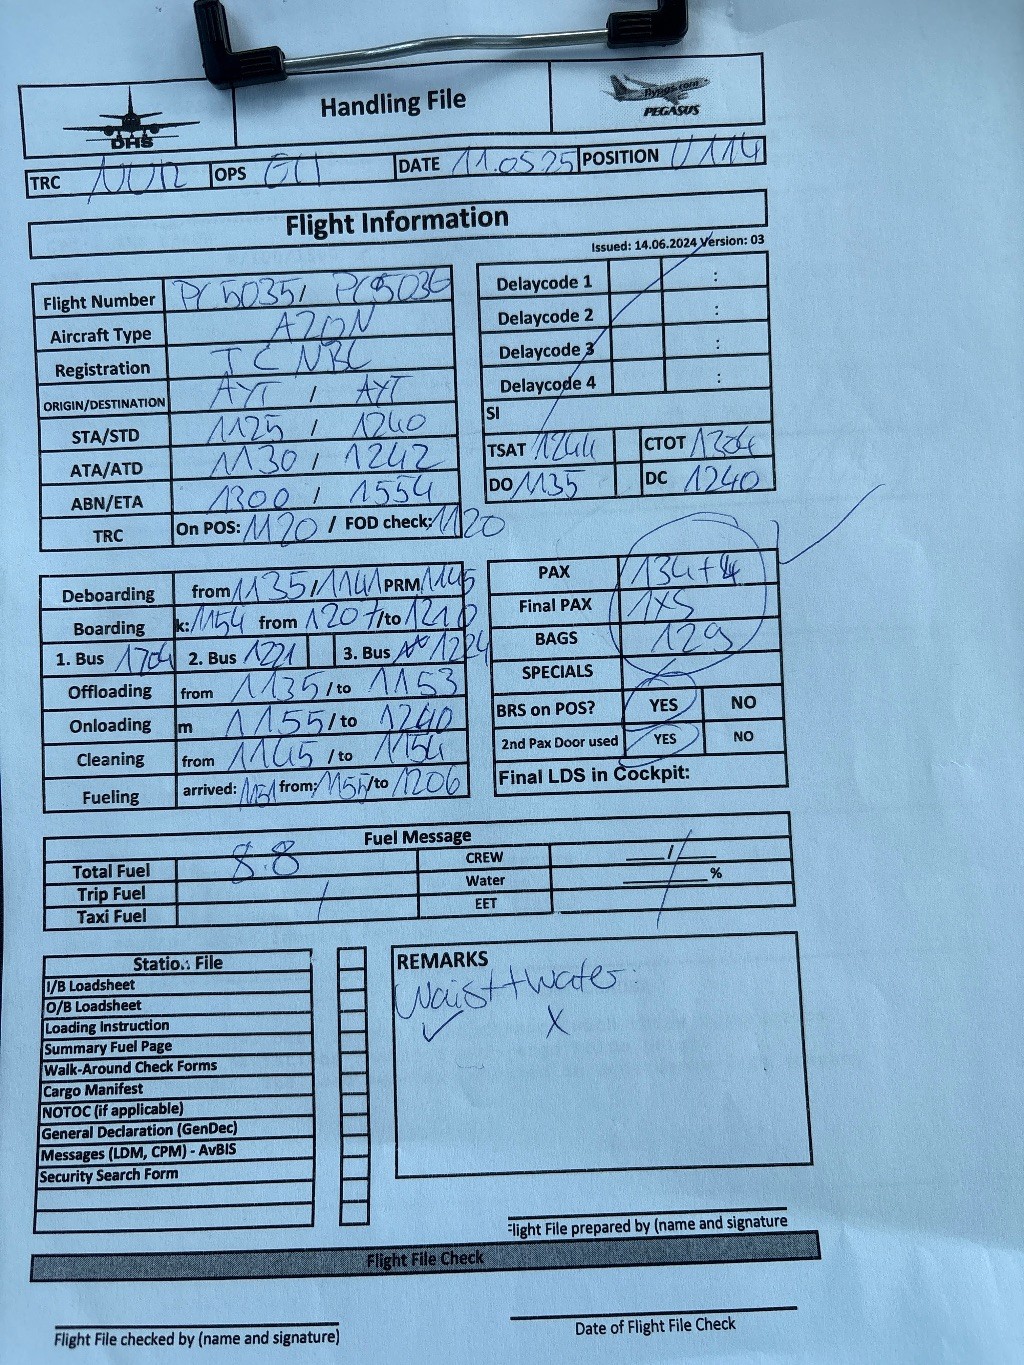 DHS
Handling File
flypgs.com
PEGASUS
TRC NUR OPS DATE 11.05.25 POSITION V114
Flight Information
Issued: 14.06.2024 Version: 03
Flight Number PC5035/ PC5036
Aircraft Type A20N
Registration TC NBC
ORIGIN/DESTINATION AYT / AYT
STA/STD 1125 / 1240
ATA/ATD 1130 / 1242
ABN/ETA 1300 / 1554
TRC On POS: 1120 / FOD check: 1120
Delaycode 1 :
Delaycode 2 :
Delaycode 3 :
Delaycode 4 :
SI
TSAT 1244 CTOT 1304
DO 1135 DC 1240
Deboarding from 1135/1141 PRM 1145
Boarding k: 1154 from 1207/to 1210
1. Bus 2. Bus 1221 3. Bus 1224
Offloading from 1135/to 1153
Onloading m 1155/to 1240
Cleaning from 1145 /to 1154
Fueling arrived: 1151 from: 1155/to 1206
PAX 134+4
Final PAX 1x5
BAGS 129
SPECIALS
BRS on POS? YES NO
2nd Pax Door used YES NO
Final LDS in Cockpit:
Fuel Message
Total Fuel 8.8 CREW /
Trip Fuel Water %
Taxi Fuel / EET
Statio.: File
I/B Loadsheet
O/B Loadsheet
Loading Instruction
Summary Fuel Page
Walk-Around Check Forms
Cargo Manifest
NOTOC (if applicable)
General Declaration (GenDec)
Messages (LDM, CPM) - AvBIS
Security Search Form
REMARKS
Waist+Water:
✓ X
Flight File prepared by (name and signature
Flight File Check
Flight File checked by (name and signature)
Date of Flight File Check